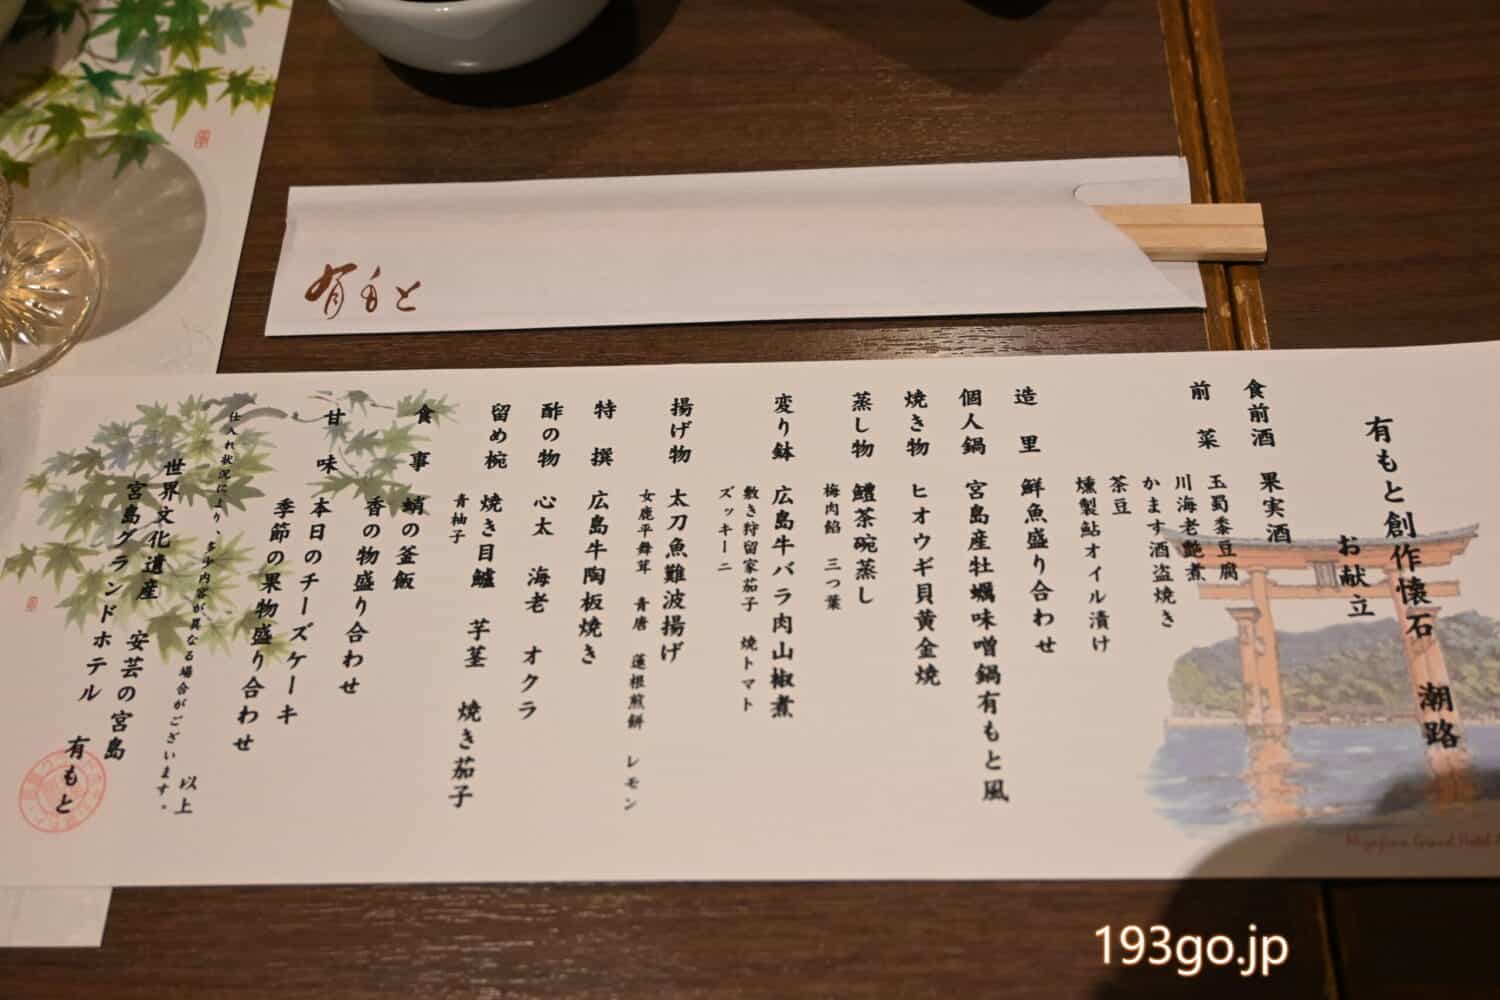 有もと
有もと創作懐石　潮路
お献立
食前酒　果実酒
前菜　玉蜀黍豆腐
川海老艶煮
かます酒盗焼き
茶豆
燻製鮎オイル漬け
造里　鮮魚盛り合わせ
個人鍋　宮島産牡蠣味噌鍋有もと風
焼き物　ヒオウギ貝黄金焼
蒸し物　鱧茶碗蒸し
梅肉餡　三つ葉
変り鉢　広島牛バラ肉山椒煮
敷き狩留家茄子　焼トマト
ズッキーニ
揚げ物　太刀魚難波揚げ
女鹿平舞茸　青唐　蓮根煎餅　レモン
特撰　広島牛陶板焼き
酢の物　心太　海老　オクラ
留め椀　焼き目鱸　芋茎　焼き茄子
青柚子
食事　蛸の釜飯
香の物盛り合わせ
甘味　本日のチーズケーキ
季節の果物盛り合わせ
仕入れ状況により、多少内容が異なる場合がございます。
以上
世界文化遺産　安芸の宮島
宮島グランドホテル　有もと
Miyajima Grand Hotel
193go.jp